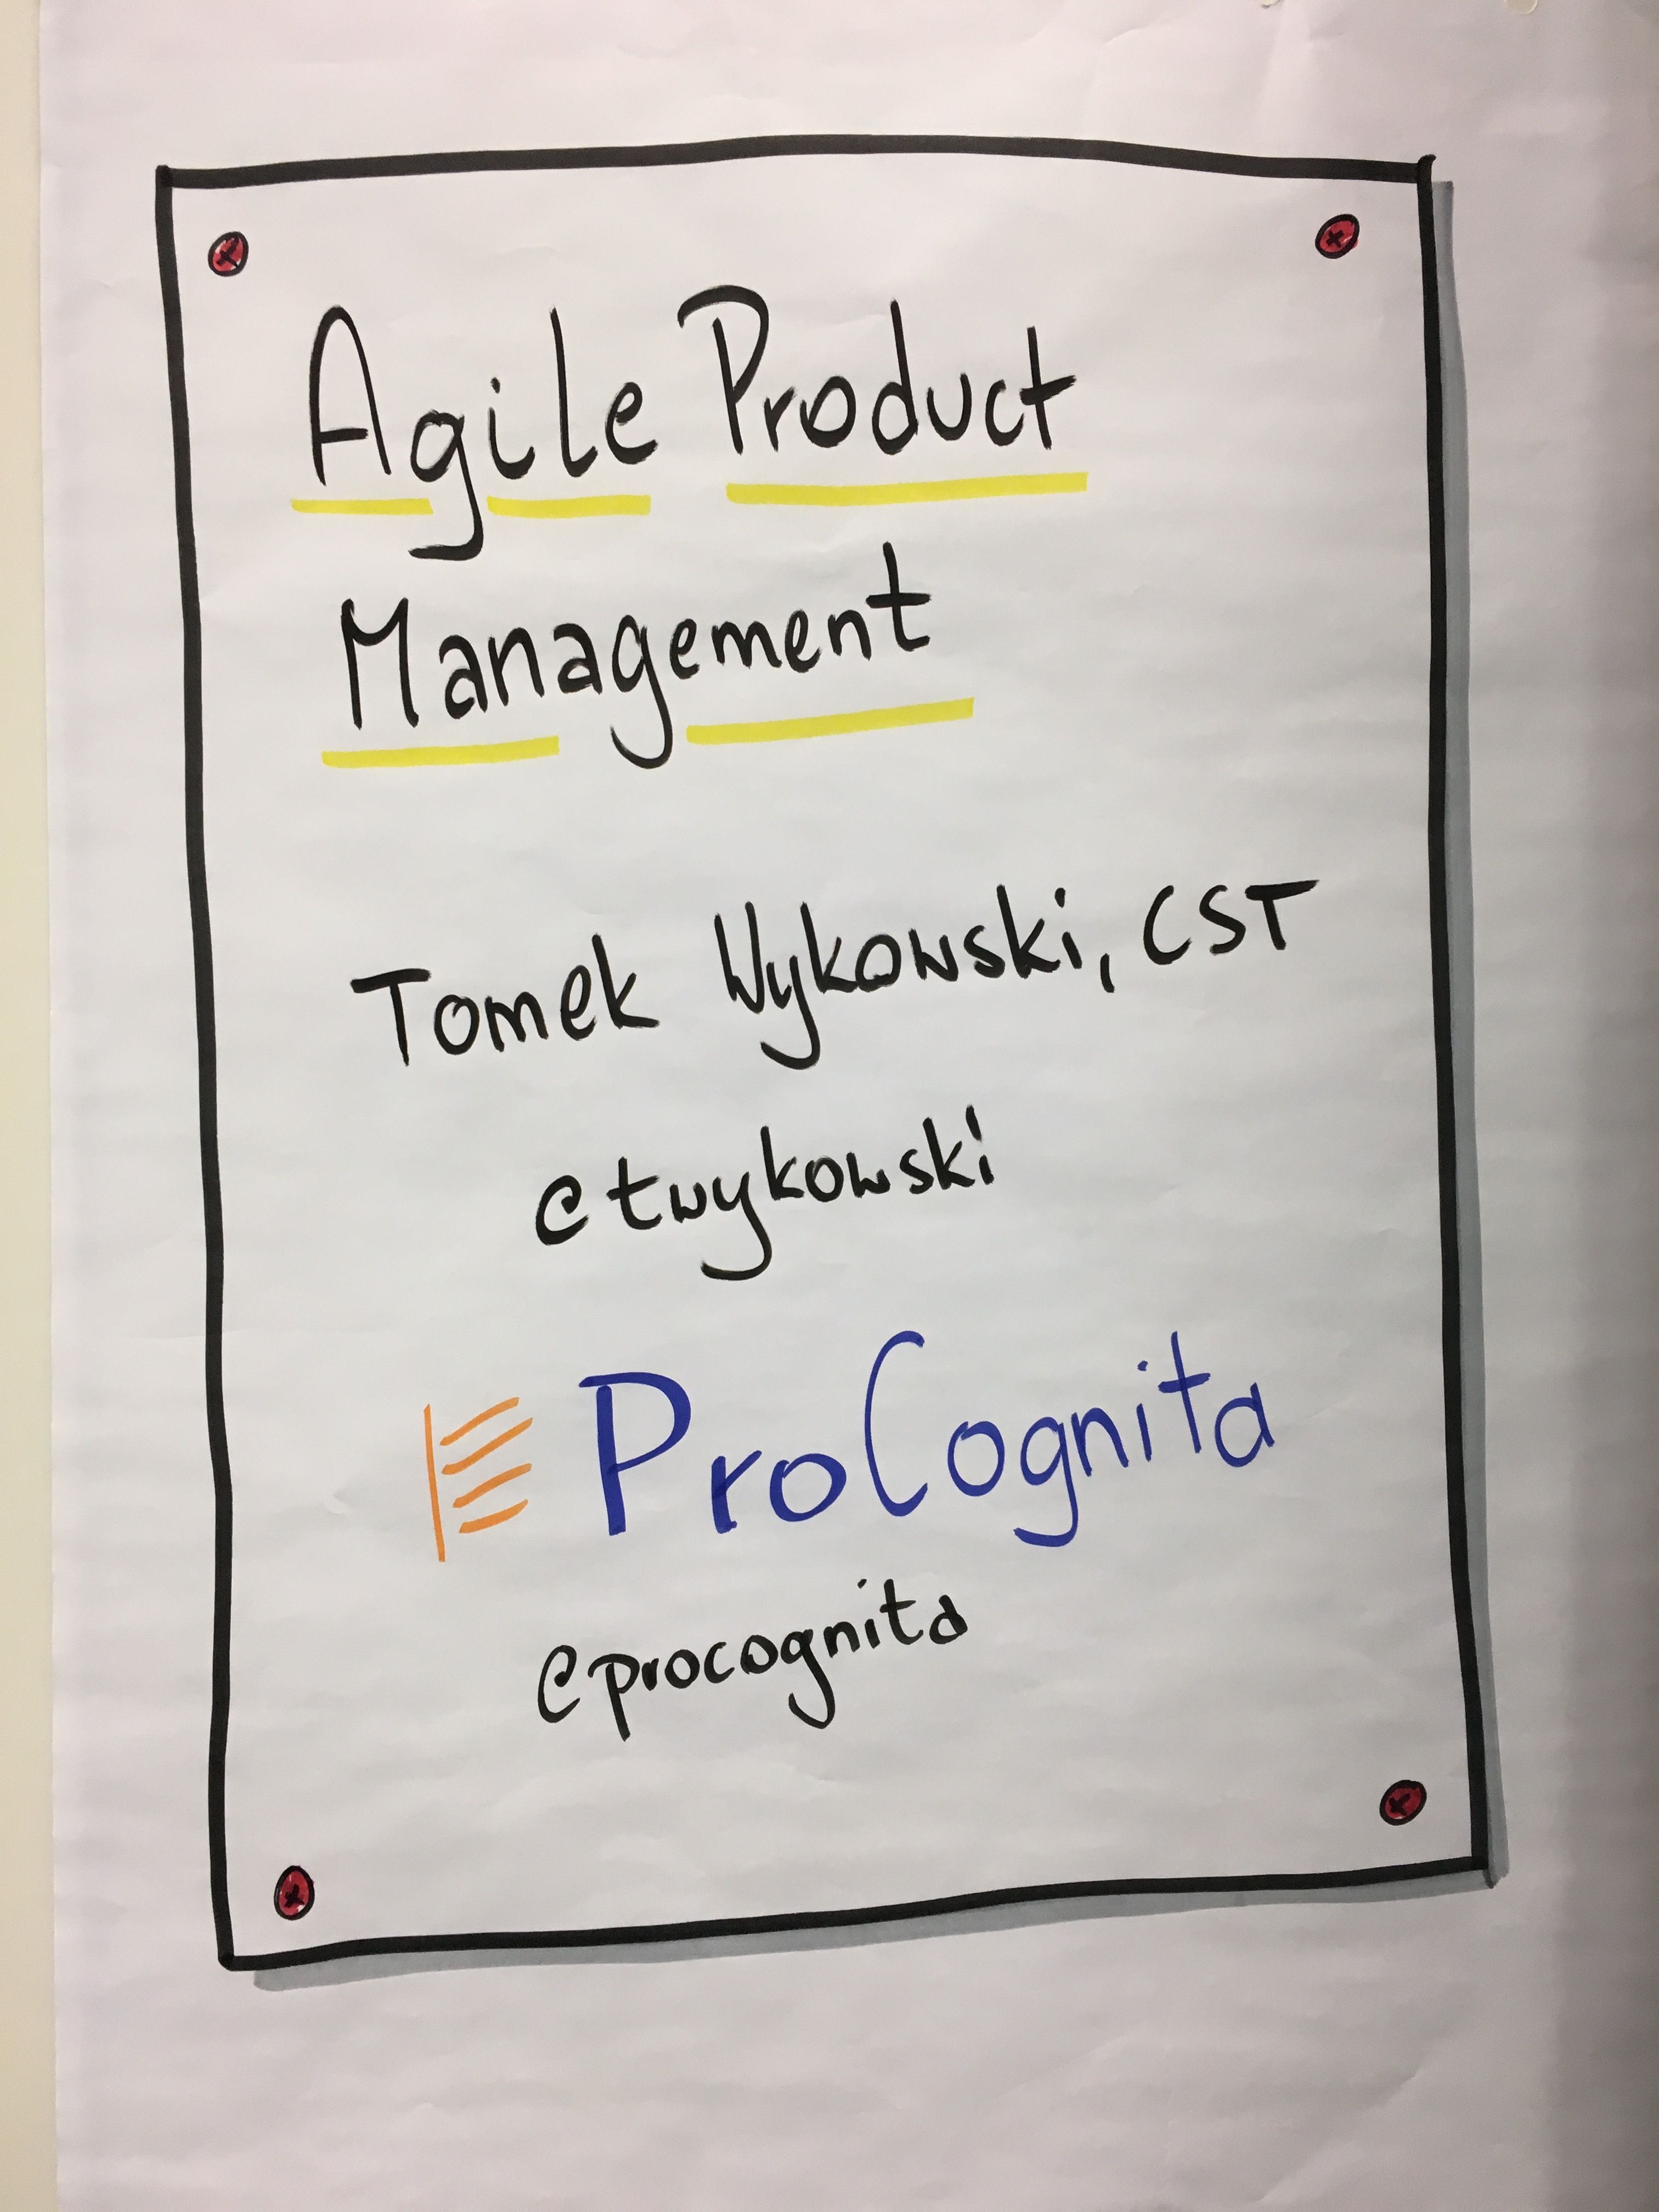 Agile Product
Management
Tomek Wykowski, CST
@twykowski
ProCognita
@procognita